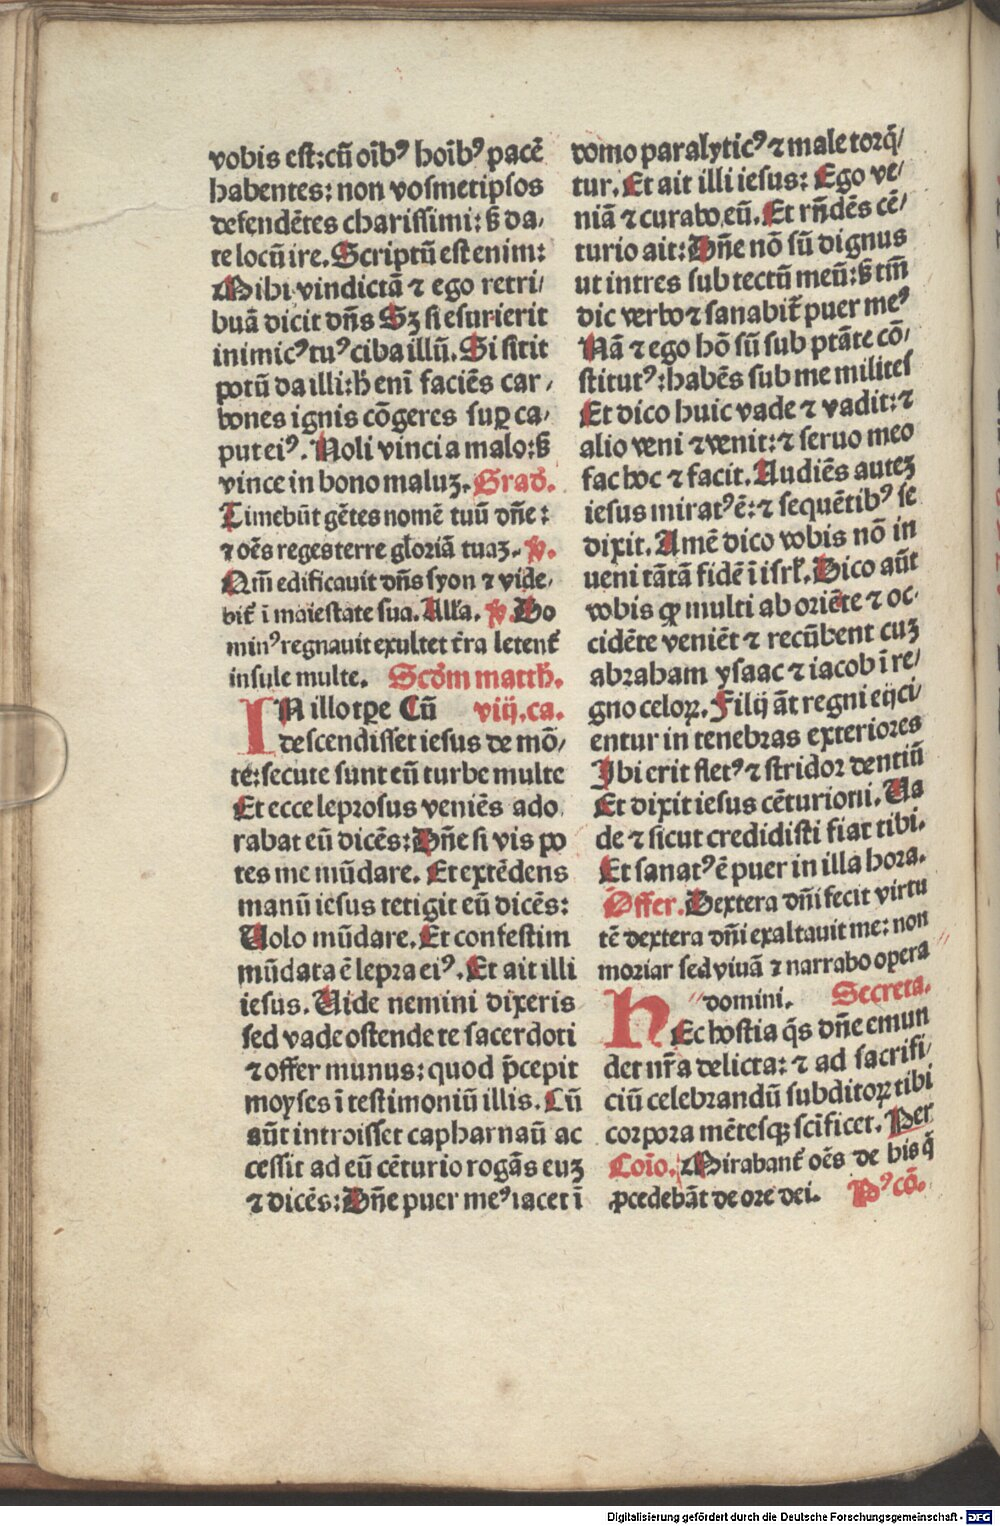 vobis est: cū oībꝰ hoībꝰ pacē
habentes: non vosmetipsos
defendētes charissimi: sꝫ da/
te locū ire. Scriptū est enim:
Mihi vindictā ⁊ ego retri/
buā dicit dn̄s Sꝫ si esurierit
inimicꝰ tuꝰ ciba illū. Si sitit
potū da illi: h̄ enī faciēs car/
bones ignis cōgeres suꝑ ca/
put eiꝰ. Noli vinci a malo: sꝫ
vince in bono maluꝫ. Grad̄.
Timebūt gētes nomē tuū dn̄e:
⁊ oēs reges terre gloriā tuaꝫ. ℣.
Qm̄ edificauit dn̄s syon ⁊ vide/
bit̄ ī maiestate sua. Alla. ℣. Do
minꝰ regnauit exultet t̄ra letent̄
insule multe. Scd̄m matth̄.
IN illo tꝑe Cū viij. ca.
descendisset iesus de mō/
te: secute sunt eū turbe multe
Et ecce leprosus veniēs ado
rabat eū dicēs: Dn̄e si vis po
tes me mūdare. Et extēdens
manū iesus tetigit eū dicēs:
Uolo mūdare. Et confestim
mūdata ē lepra eiꝰ. Et ait illi
iesus. Uide nemini dixeris
sed vade ostende te sacerdoti
⁊ offer munus: quod p̄cepit
moyses ī testimoniū illis. Cū
aūt introisset capharnaū ac
cessit ad eū cēturio rogās euꝫ
⁊ dicēs: Dn̄e puer meꝰ iacet ī
domo paralyticꝰ ⁊ male torq̄/
tur. Et ait illi iesus: Ego ve/
niā ⁊ curabo eū. Et rn̄dēs cē/
turio ait: Dn̄e nō sū dignus
ut intres sub tectū meū: sꝫ tm̄
dic verbo ⁊ sanabit̄ puer meꝰ
Nā ⁊ ego hō sū sub ptāte cō/
stitutꝰ: habēs sub me milites
Et dico huic vade ⁊ vadit: ⁊
alio veni ⁊ venit: ⁊ seruo meo
fac hoc ⁊ facit. Audiēs auteꝫ
iesus miratꝰ ē: ⁊ sequētibꝰ se
dixit. Amē dico vobis nō in
ueni tātā fidē ī isrl̄. Dico aūt
vobis ꝙ multi ab oriēte ⁊ oc
cidēte veniēt ⁊ recūbent cuꝫ
abraham ysaac ⁊ iacob ī re/
gno celoꝝ. Filij āt regni eijci/
entur in tenebras exteriores
Ibi erit fletꝰ ⁊ stridor dentiū
Et dixit iesus cēturioni. Ua
de ⁊ sicut credidisti fiat tibi.
Et sanatꝰ ē puer in illa hora.
Offer. Dextera dn̄i fecit virtu
tē dextera dn̄i exaltauit me: non
moriar sed viuā ⁊ narrabo opera
domini. Secreta.
HEc hostia q̄s dn̄e emun
det nr̄a delicta: ⁊ ad sacrifi/
ciū celebrandū subditoꝝ tibi
corpora mētesqꝫ scīficet. Per
Coīo. Mirabant̄ oēs de his q̄
ꝓcedebāt de ore dei. Pꝰ cō.
Digitalisierung gefördert durch die Deutsche Forschungsgemeinschaft - DFG